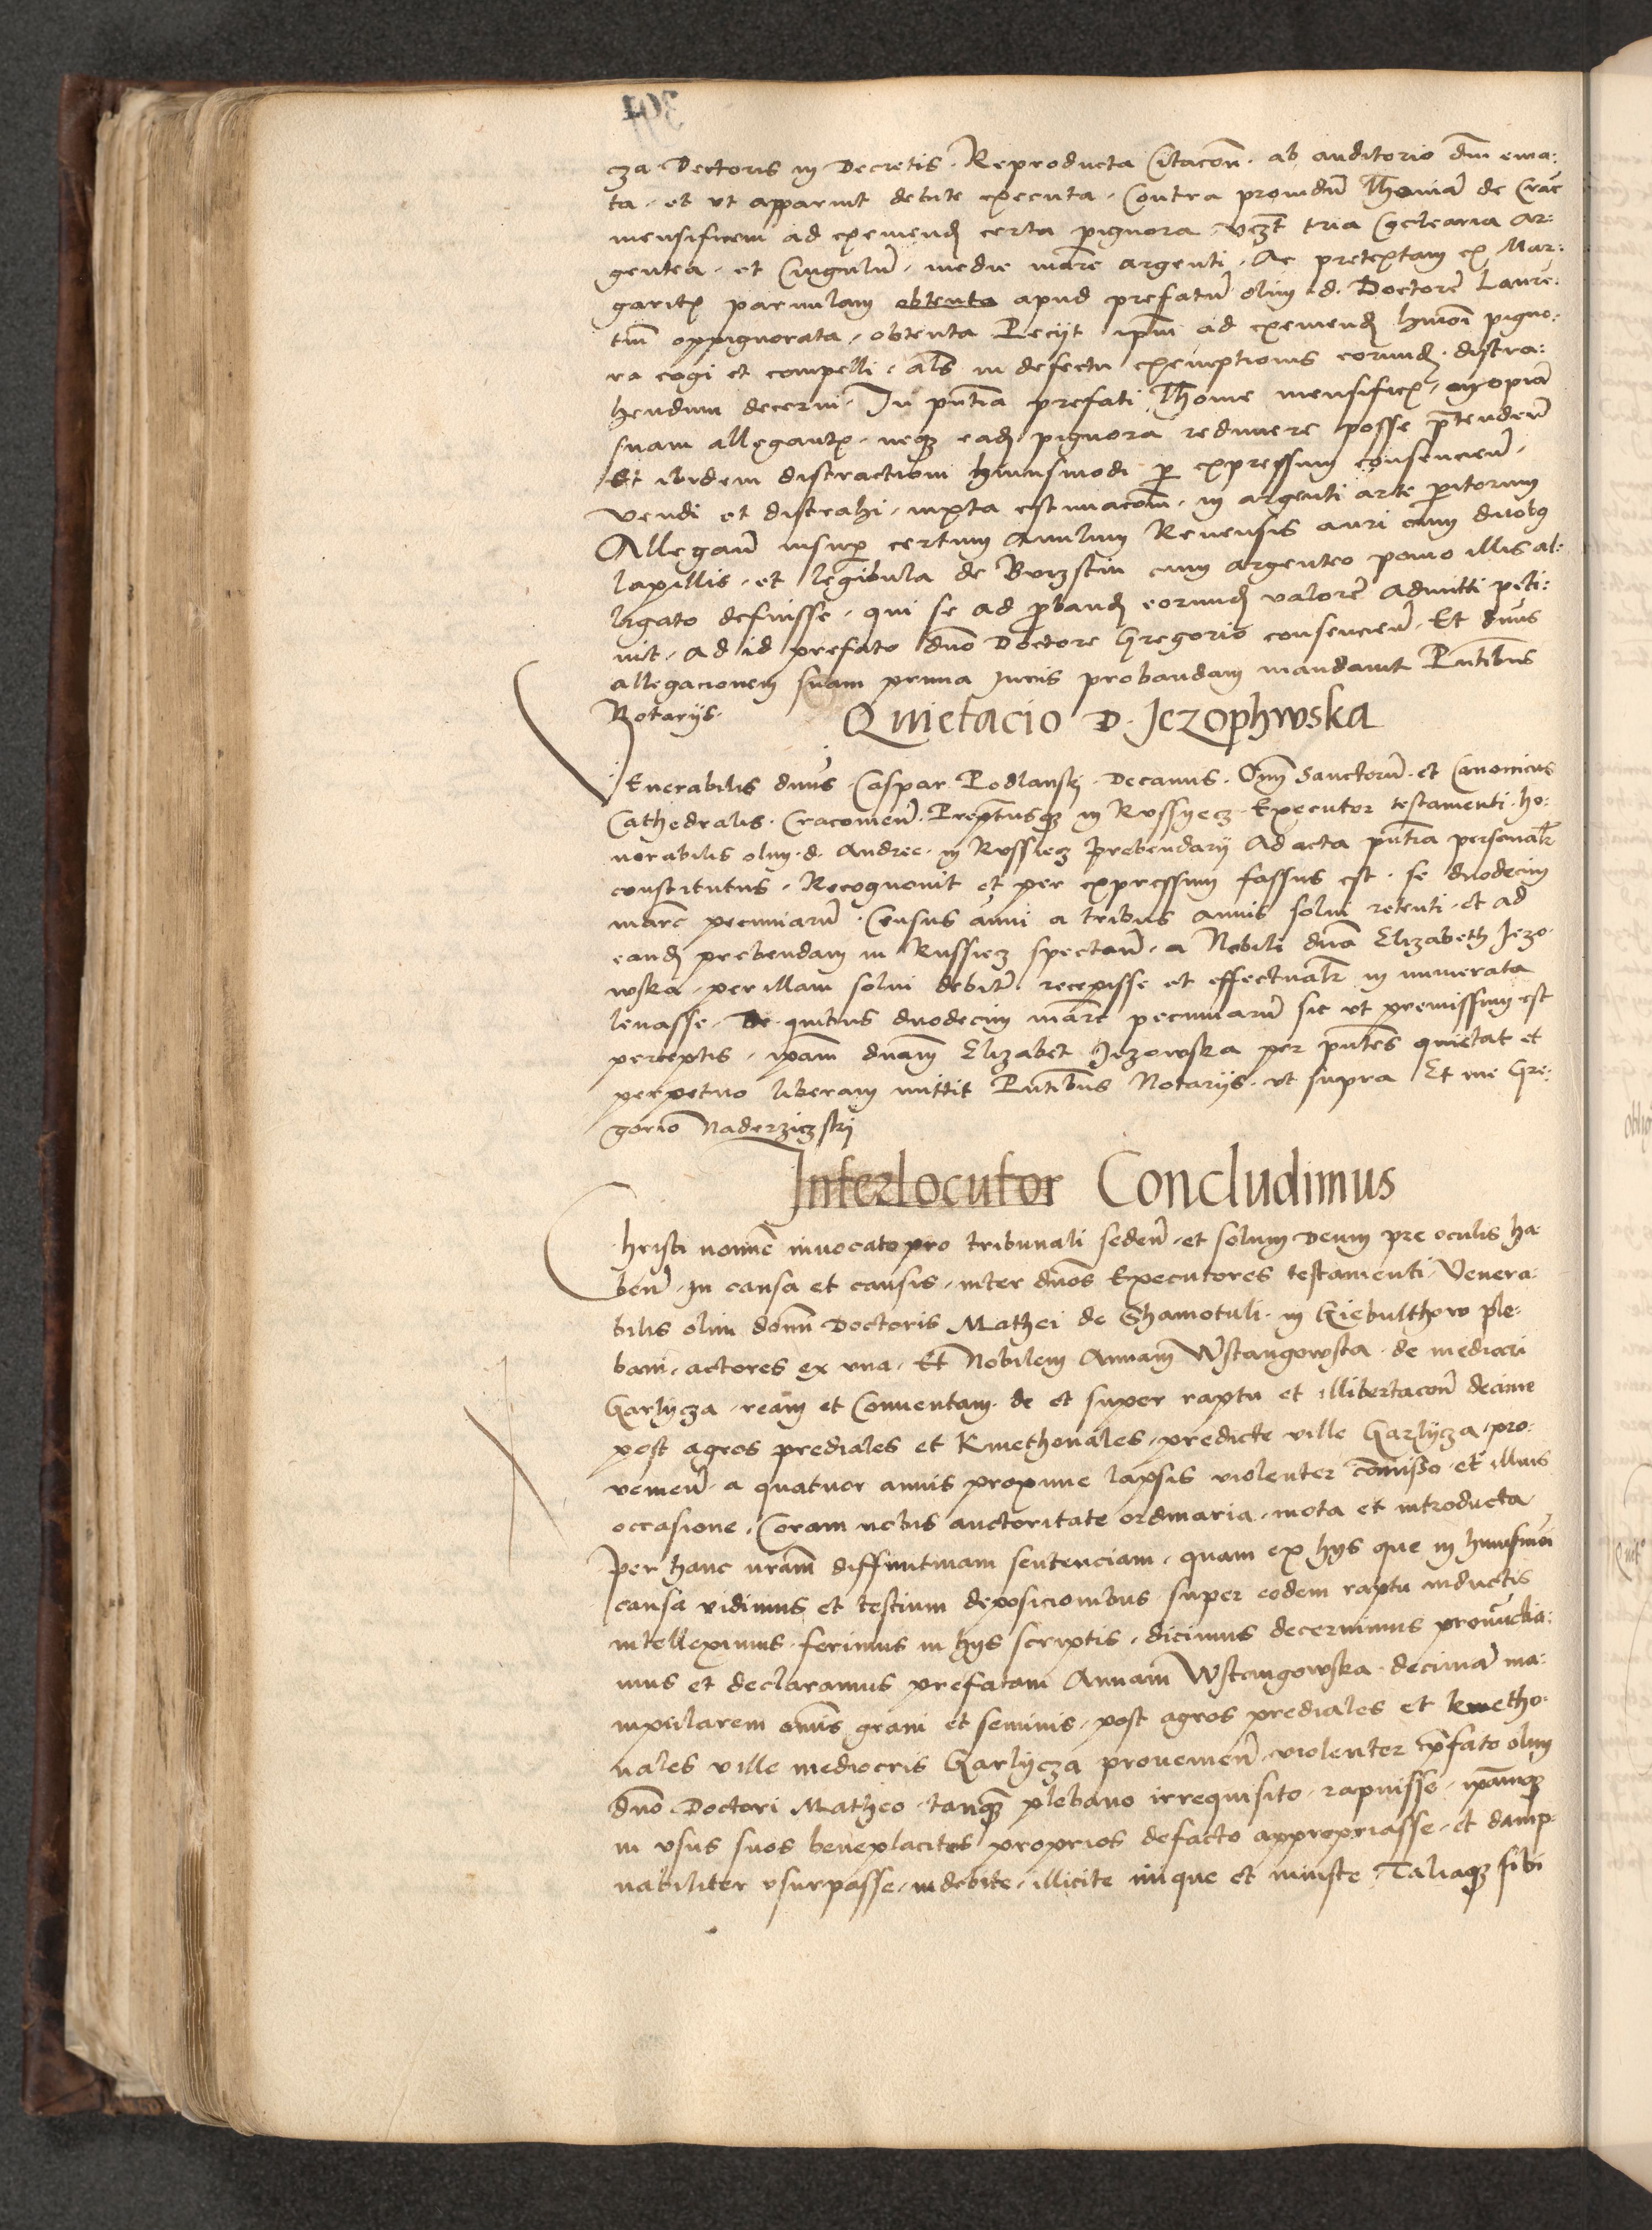 cza Doctoris in Decretis. Reproducta Citacoñ. ab auditorio dñi ema:
ta. et vt apparuit debite executa. Contra providũ Thomã de Crac
mensificem ad exemenđ certa pignora vczt tria Coclearia ar:
gentea. et Cingulũ. medie marc argenti. Ac pretextam ex Mar:
garitꝭ parvulam obtenta apud prefatũ olim d. Doctorẽ Laurẽ:
tiũ oppignorata, obtenta Pecijt ipm̃ ad exemenđ hmõi pigno:
ra cogi et compelli. als in defectu exemptionis eorundꝭ. distra:
hendum decerni. In pñtia prefati Thome mensificꝭ, inopiã
suam allegantꝭ. neqꝫ eadꝭ pignora redimere posse ptendeñ
Et ibidem distractioni huiusmodi p expressum consencieñ.
vendi et distrahi. iuxta estimacoñ. in argenti arte pitorum
Allegañ insup certum Annlum Renensis auri cum duobꝰ
lapillis. et legibula de Burzstin cum argenteo pomo illis al:
ligato defuisse. qui se ad pbandꝭ eorundꝭ valorẽ admitti peti:
uit. Ad id prefato dño Doctore Gregorio consencieñ. Et dñus
allegacionem suam prima Iuris probandam mandauit Pñtibus
Notarijs.
Quietacio D. Jezophwska
Venerabilis dñus. Caspar Podlanskj. Decanus. Oĩm Sanctorũ. et Canonicus
Cathedralis. Cracovieñ. Prepñtusqꝫ in Russyecz. Executor testamenti. ho:
norabilis olim. d. Andree. in Russiecz Prebendarij Ad acta pñtia personalr̃
constitutus. Recognovit et per expressum fassus est. se duodecim
marc pecuniarũ. Census anui a tribus annis solui retenti. et ad
eandꝭ prebendam in Russiecz spectañ. a Nobili dña Elizabeth Jezo-
wska. per illam solui debitũ. recepisse et effectualr̃ in numerata
levasse. De quibus duodecim marc pecuniarũ sic vt premissum est
perceptis. ipam̃ dnam̃ Elizabet Jezowska per pñtes quietat et
perpetuo liberam mittit Pñtibus Notarijs. vt supra Et me Gre:
gorio Naderziczskj
Interlocutor Concludimus
Christi nomĩe invocato pro tribunali sedeñ. et solum Deum pre oculis ha-
beñ. In causa et causis. inter dños Executores testamenti. Venera:
bilis olim domĩ Doctoris Mathei de Shamotuli. in Giebulthow ple:
bani. actores ex vna. Et Nobilem Annam Wstangowska. de mediocri
Garlycza. ream et Conventam. de et super raptu et illibertacoñ decime
post agros prediales et Kmethonales. predicte ville Garlycza. pro:
venieñ. a quatuor annis proxime lapsis violenter com̃isso. et illius
occasione. Coram nobis auctoritate ordinaria. mota et introducta
Per hanc nr̃am diffinitivam sentenciam. quam ex hys que in huiusmõi
causa vidimus et testium deposicionibus super eodem raptu inductis
intelleximus. ferimus in hys scriptis. dicimus decernimus pronũccia:
mus et declaramus prefatam Annam Wstangowska. decimã ma:
nipularem om̃is grani et seminis. post agros prediales et kmetho:
nales ville mediocris Garlycza provenieñ. violenter pfato olim
dño Doctori Matheo. tanqꝫ plebano irrequisito. rapuisse. ipamqꝫ
in vsus suos beneplacitos proprios defacto appropriasse. et damp-
nabiliter vsurpasse. indebite. illicite inique et iniuste. Taliaqꝫ sibi